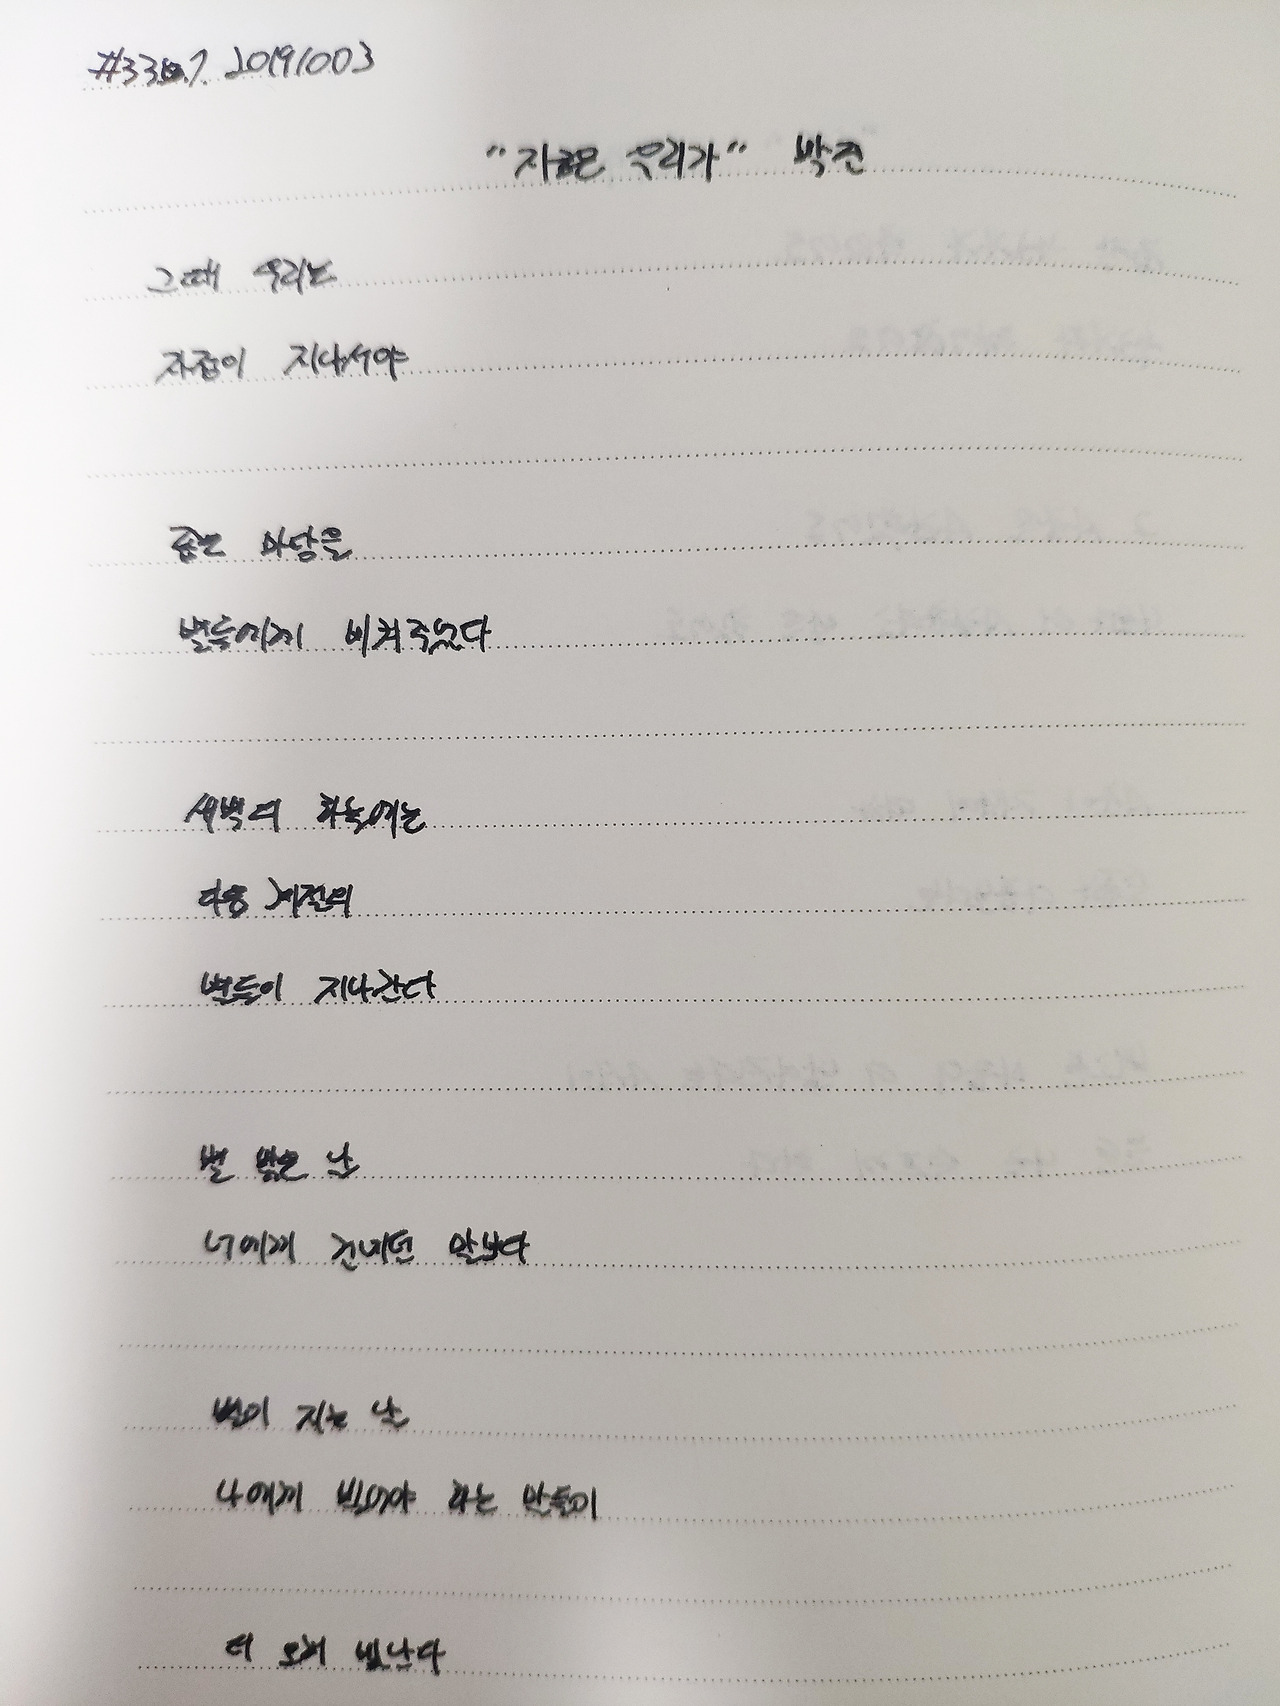 20191003
"지금은 우리가" 박준
그때 우리는
자정이 지나서야
좁은 마당을
별들에게 비켜주었다
새벽의 하늘에는
다음 계절의
별들이 지나간다
별 밝은 날
너에게 건네던 말보다
별이 지는 날
나에게 빌어야 하는 말들이
더 오래 빛난다